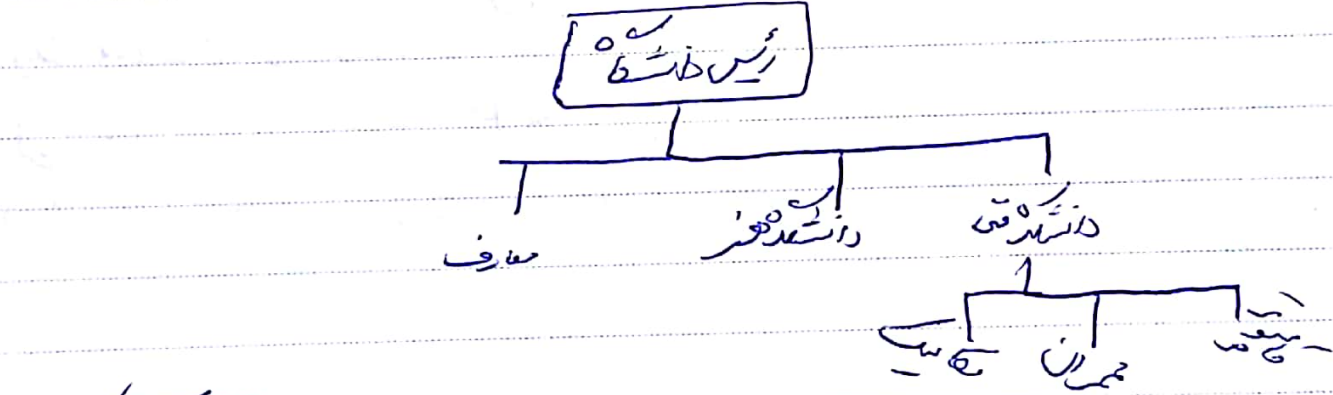 رئیس دانشگاه
دانشکده فنی
دانشکده هنر
معارف
عمران
مکانیک